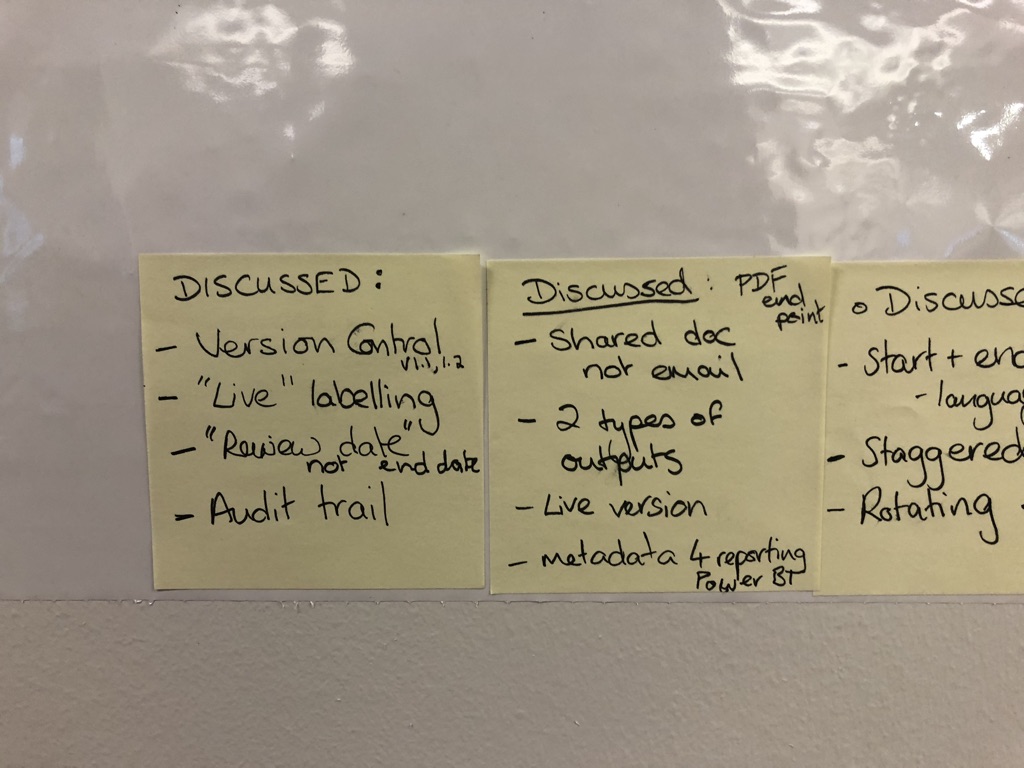 DISCUSSED:
- Version Control
V1.1, 1.2
- "Live" labelling
- "Review date"
not end date
- Audit trail
Discussed: PDF
end
point
- Shared doc
not email
- 2 types of
outputs
- Live version
- metadata 4 reporting
Power BI
o Discusse
- Start + end
- languag
- Staggered
- Rotating